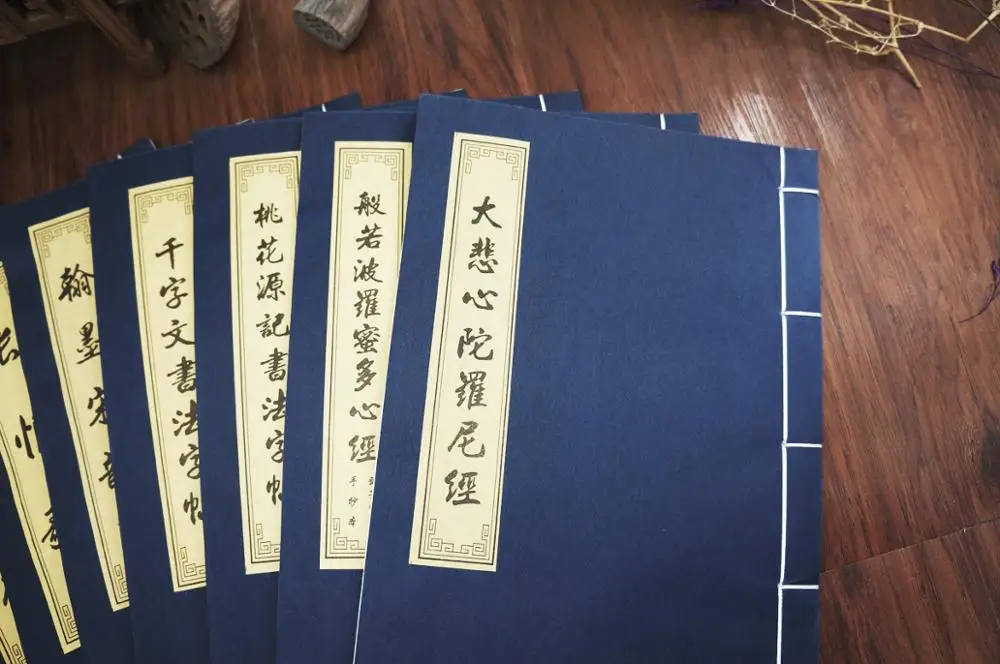 大悲心陀羅尼經
般若波羅蜜多心經
手抄本
桃花源記書法字帖
千字文書法字帖
翰墨宋韵